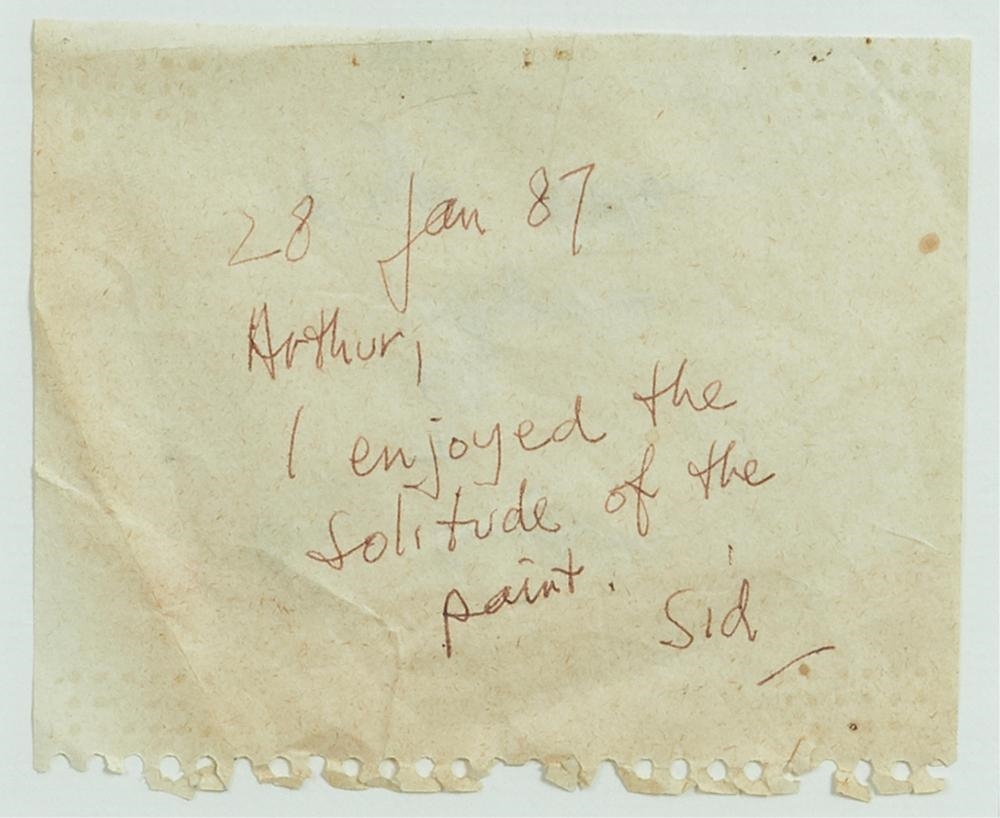 28 Jan 87
Arthur,
I enjoyed the
Solitude of the
paint.
Sid